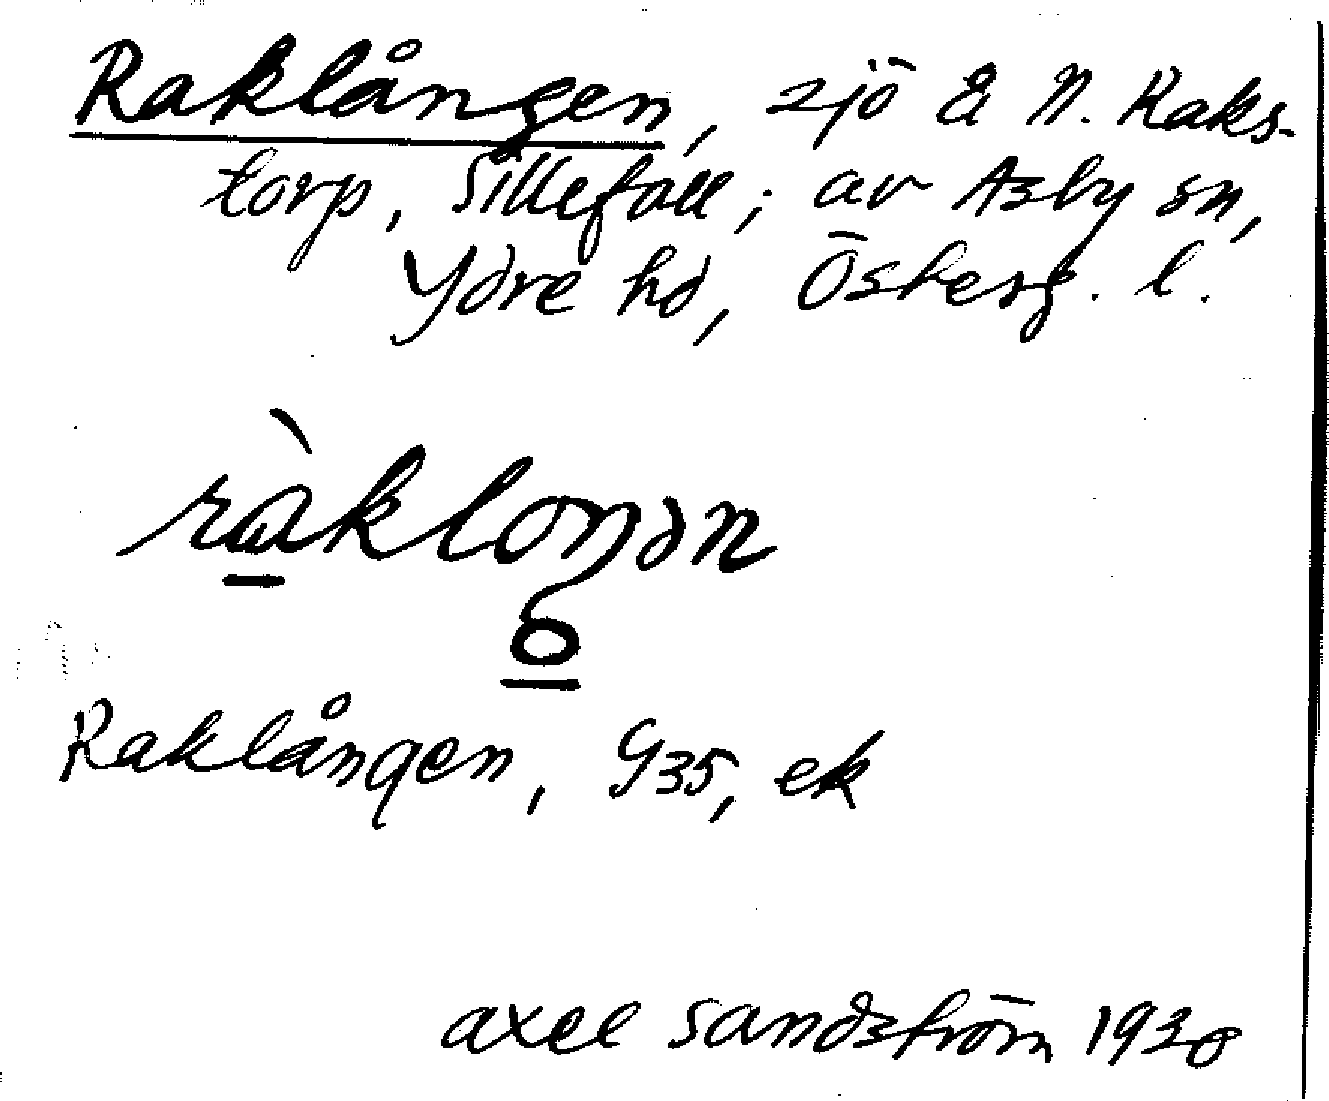 Raklången, sjö Å N. Raks-
torp, Sillefall; av Asby sn,
Ydre hd, Österg. l.
ràkloŋən
Raklången, G35, ek
axel sandström 1930